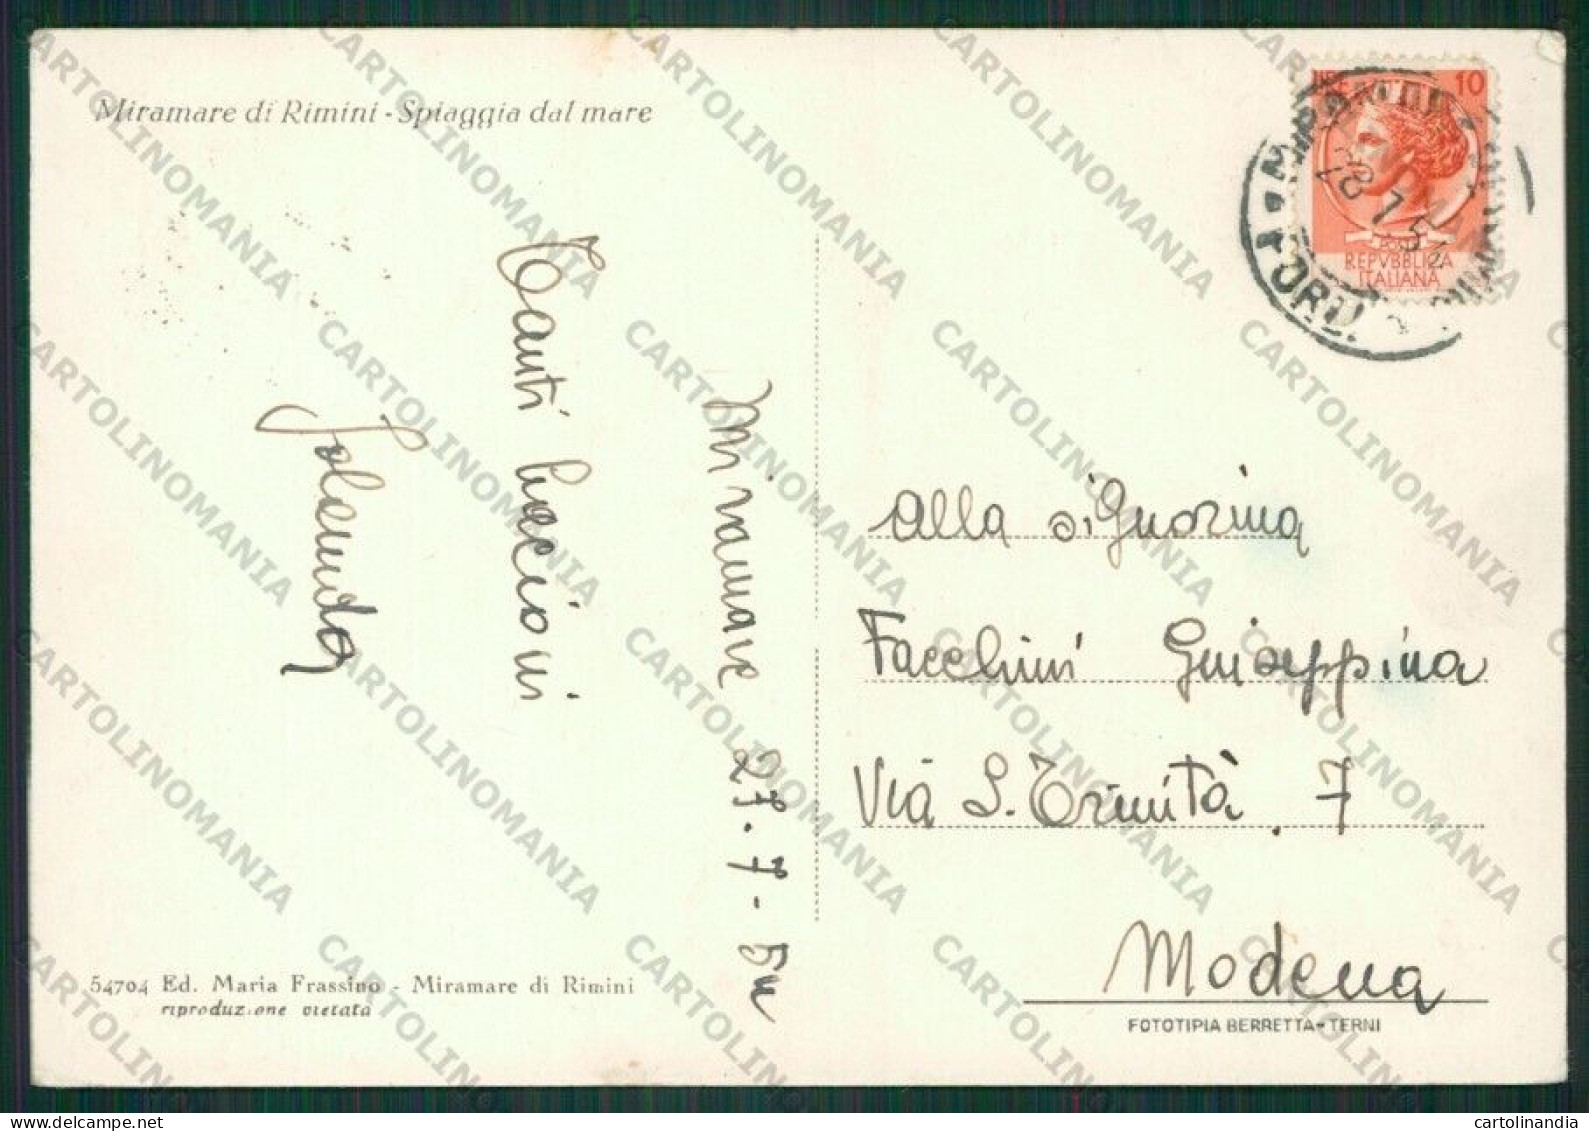 Miramare di Rimini - Spiaggia dal mare
10
REPVBBLICA
ITALIANA
Miramare 27-7-54
Tanti baccioni
Jolanda
Alla signorina
Facchini Giuseppina
Via S. Trinità. 7
Modena
54704 Ed. Maria Frassino - Miramare di Rimini
riproduzione vietata
FOTOTIPIA BERRETTA - TERNI
CARTOLINOMANIA
cartolinandia